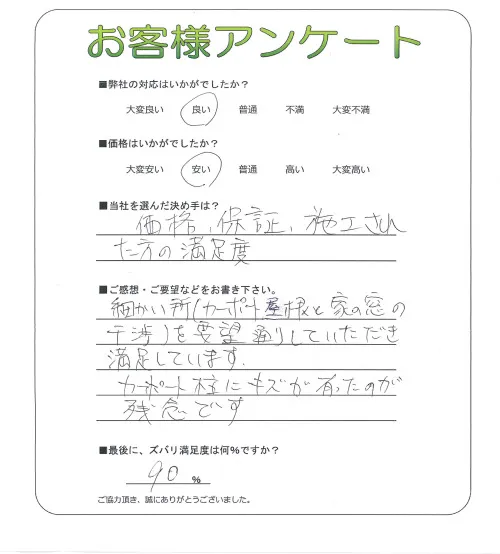 お客様アンケート
■弊社の対応はいかがでしたか？
大変良い 良い 普通 不満 大変不満
■価格はいかがでしたか？
大変安い 安い 普通 高い 大変高い
■当社を選んだ決め手は？
価格、保証、施工され
た方の満足度
■ご感想・ご要望などをお書き下さい。
細かい所(カーポート屋根と家の窓の
干渉)を要望通りしていただき
満足しています.
カーポート柱にキズが有ったのが
残念です
■最後に、ズバリ満足度は何%ですか？
90 %
ご協力頂き、誠にありがとうございました。